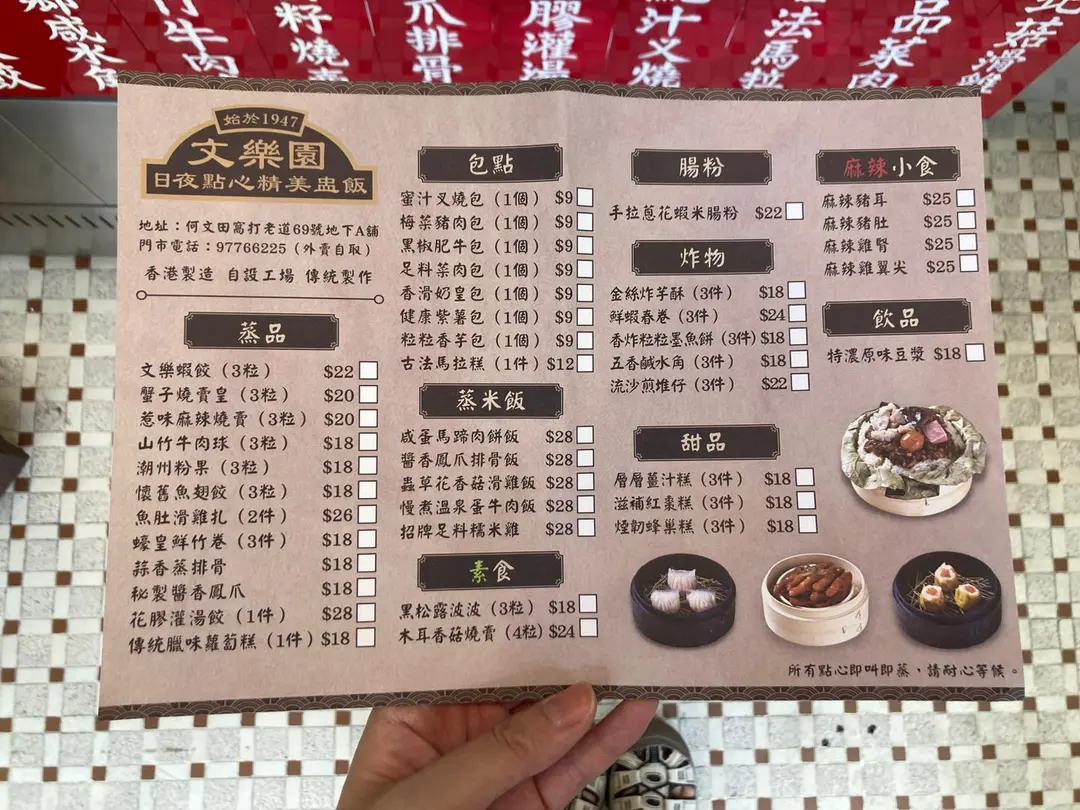 咸水角
牛肉
籽燒賣
爪排骨
膠灌湯
汁叉燒
法馬拉
品菜肉
菇滑雞
餃
始於1947
文樂園
日夜點心精美盅飯
地址：何文田窩打老道69號地下A舖
門市電話：97766225（外賣自取）
香港製造 自設工場 傳統製作
蒸品
文樂蝦餃（3粒） $22
蟹子燒賣皇（3粒） $20
惹味麻辣燒賣（3粒） $20
山竹牛肉球（3粒） $18
潮州粉果（3粒） $18
懷舊魚翅餃（3粒） $18
魚肚滑雞扎（2件） $26
蠔皇鮮竹卷（3件） $18
蒜香蒸排骨 $18
秘製醬香鳳爪 $18
花膠灌湯餃（1件） $28
傳統臘味蘿蔔糕（1件）$18
包點
蜜汁叉燒包（1個） $9
梅菜豬肉包（1個） $9
黑椒肥牛包（1個） $9
足料菜肉包（1個） $9
香滑奶皇包（1個） $9
健康紫薯包（1個） $9
粒粒香芋包（1個） $9
古法馬拉糕（1件）$12
蒸米飯
咸蛋馬蹄肉餅飯 $28
醬香鳳爪排骨飯 $28
蟲草花香菇滑雞飯 $28
慢煮溫泉蛋牛肉飯 $28
招牌足料糯米雞 $28
素食
黑松露波波（3粒） $18
木耳香菇燒賣（4粒）$24
腸粉
手拉蔥花蝦米腸粉 $22
炸物
金絲炸芋酥（3件） $18
鮮蝦春卷（3件） $24
香炸粒粒墨魚餅（3件）$18
五香鹹水角（3件） $18
流沙煎堆仔（3件） $22
甜品
層層薑汁糕（3件） $18
滋補紅棗糕（3件） $18
煙韌蜂巢糕（3件） $18
麻辣小食
麻辣豬耳 $25
麻辣豬肚 $25
麻辣雞腎 $25
麻辣雞翼尖 $25
飲品
特濃原味豆漿 $18
所有點心即叫即蒸，請耐心等候。